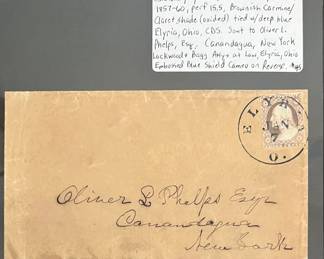 1857-60, perf 15.5, Brownish Carmine/
Claret shade (oxided) tied w/deep blue
Elyria, Ohio, CDS. Sent to Oliver L.
Phelps, Esq. Canandagua, New York
Lockwood & Bagg Attys at Law Elyria, Ohio
Embossed Blue Shield Cameo on Reverse.
ELYRIA
JAN
7
O.
Oliver L Phelps Esqr
Canandagua
New York